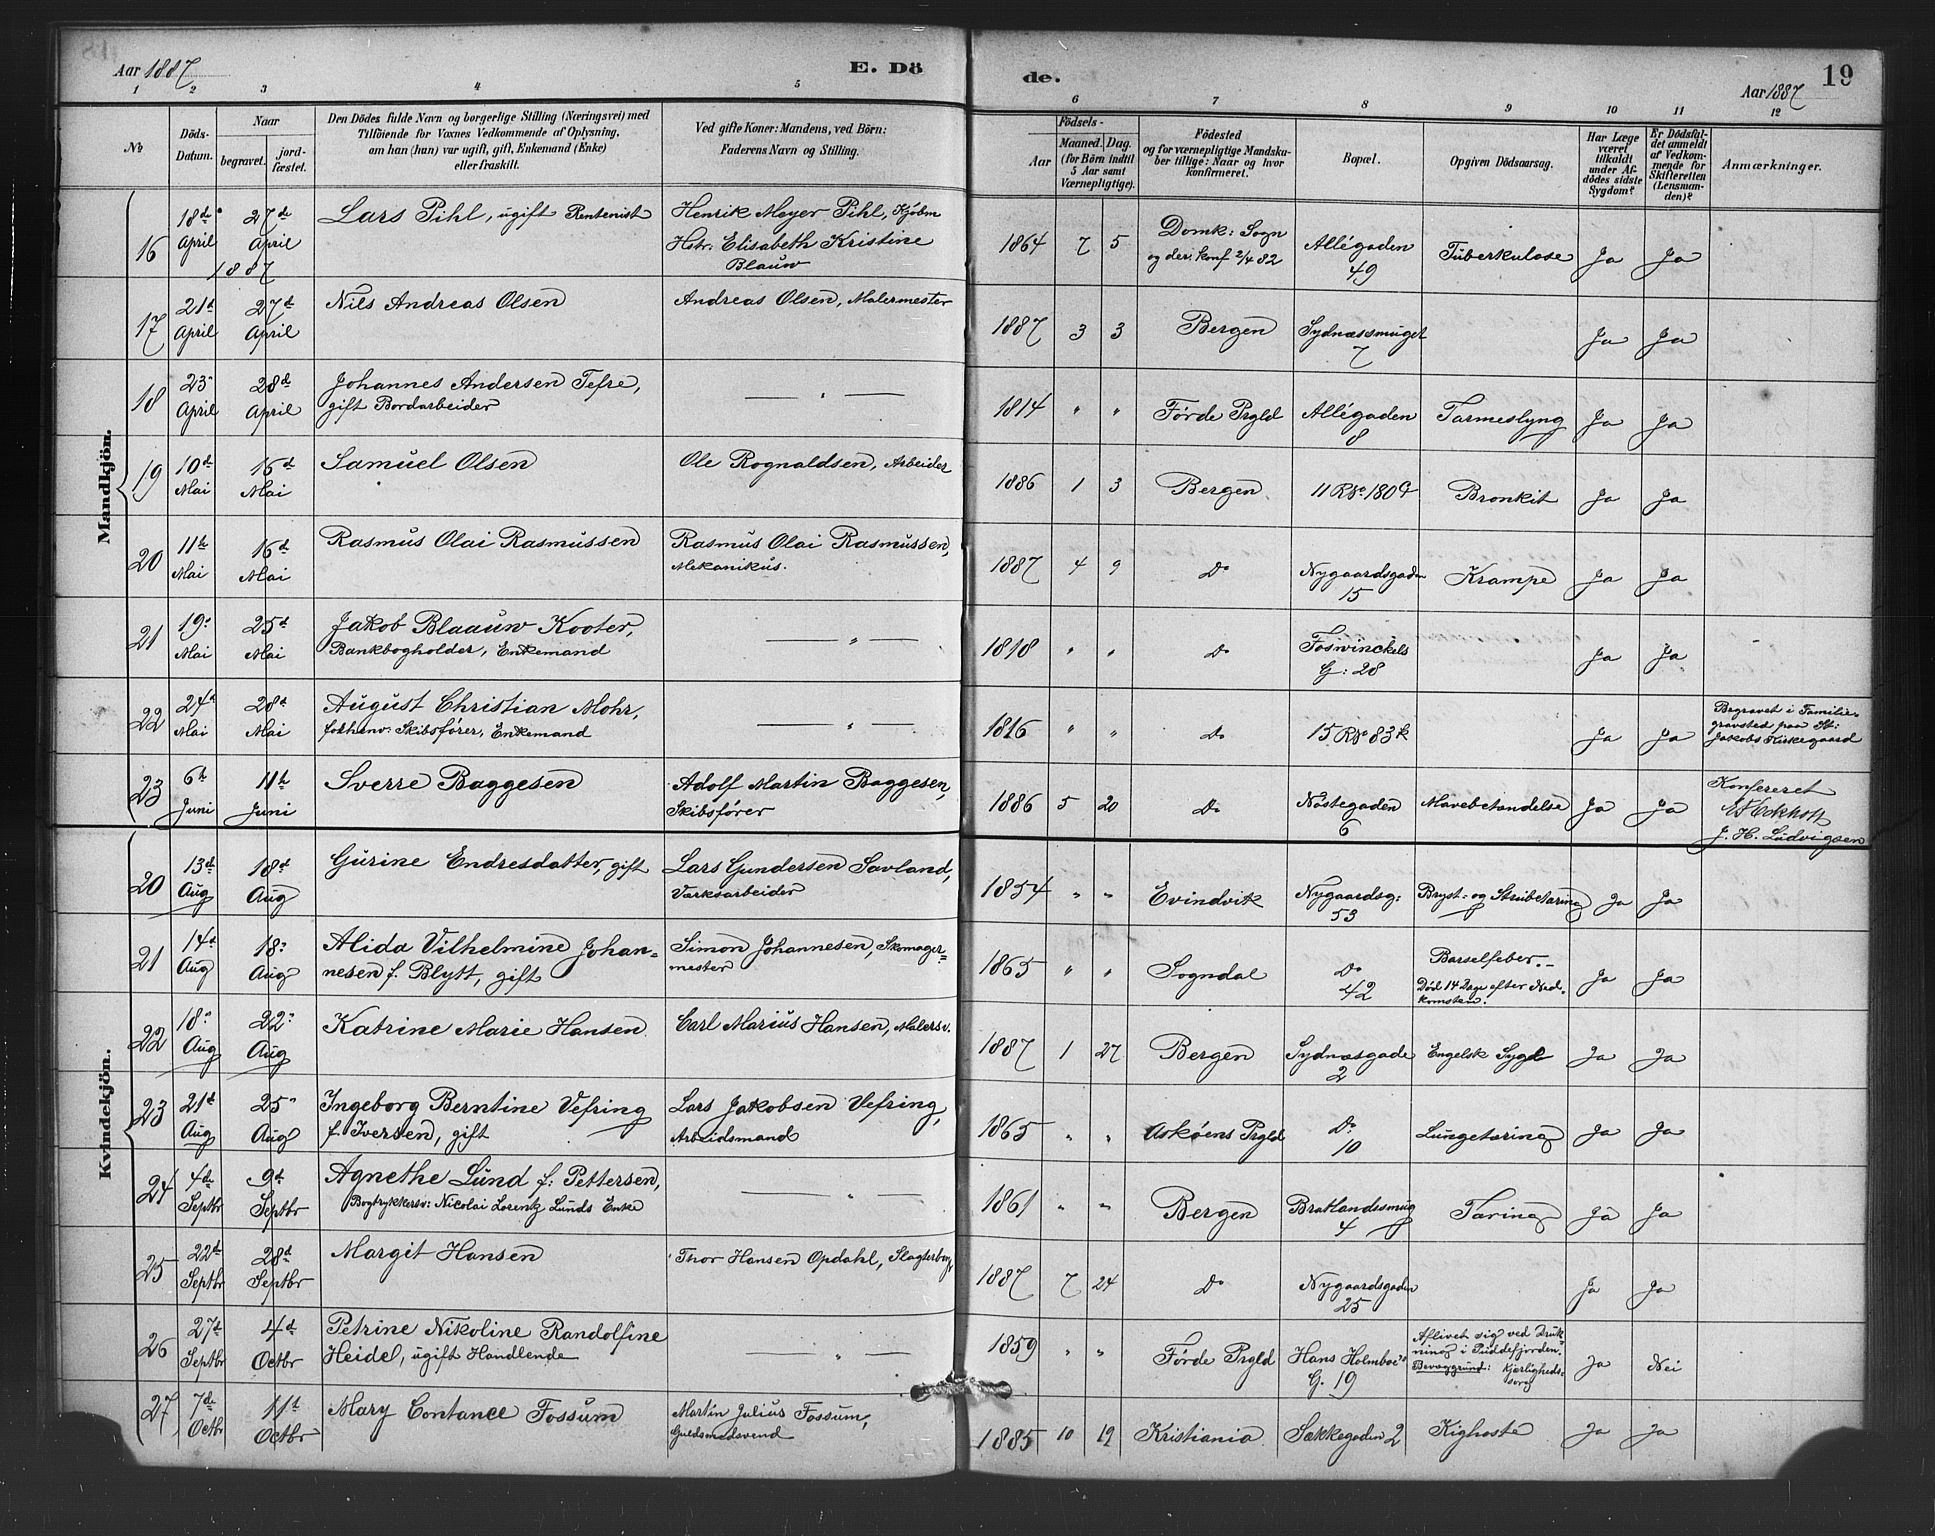 Aar 1887
E. Dö
de.
Aar 1887
19
1 2 3 4 5 6 7 8 9 10 11 12
№
Döds-
Datum.
Naar
begravet.
jord-
fæstet.
Den Dödes fulde Navn og borgerlige Stilling (Næringsvei) med
Tilföiende for Voxnes Vedkommende af Oplysning,
om han (hun) var ugift, gift, Enkemand (Enke)
eller fraskilt.
Ved gifte Koner: Mandens, ved Börn:
Faderens Navn og Stilling.
Födsels-
Aar
Maaned. Dag.
(for Börn indtil
5 Aar samt
Værnepligtige).
Födested
og for værnepligtige Mandska-
ber tillige: Naar og hvor
konfirmeret.
Bopæl.
Opgiven Dödsaarsag.
Har Læge
været
tilkaldt
under Af-
dödes sidste
Sygdom?
Er Dödsfal-
det anmeldt
af Vedkom-
mende for
Skifteretten
(Lensman-
den)?
Anmærkninger.
Mandkjön.
16 18de April 27de April 1887 Lars Pihl, ugift Rentenist Henrik Meyer Pihl, Kjøbm 1864 7 5 Domk: Sogn Allégaden Tuberkulose Ja Ja
Hstr: Elisabeth Kristine og der: konf 2/4 82 49
Blauw
17 21d April 27de April Nils Andreas Olsen Andreas Olsen, Malermester 1887 3 3 Bergen Sydnæssmuget Ja Ja
7
18 23" April 28d April Johannes Andersen Tefre, — " — 1814 " " Førde Prgld Allégaden Tarmeslyng Ja Ja
gift Bordarbeider 8
19 10d Mai 16d Mai Samuel Olsen Ole Rognaldsen, Arbeider 1886 1 3 Bergen 11 R No 180 Bronkit Ja Ja
20 11te Mai 16d Mai Rasmus Olai Rasmussen Rasmus Olai Rasmussen, 1887 4 9 Do Nygaardsgaden Krampe Ja Ja
Mekanikus. 15
21 19" Mai 25d Mai Jakob Blaauw Kooter, — " — 1818 " " Do Foswinckels Ja Ja
Bankbogholder, Enkemand G: 28
22 24d Mai 28d Mai August Christian Mohr, — " — 1816 " " Do 15 R No 83 k Ja Ja Begravet i Familie-
forhenv: Skibsfører, Enkemand gravsted paa St:
Jakobs Kirkegaard
23 6te Juni 11te Juni Sverre Baggesen Adolf Martin Baggesen, 1886 5 20 Do Nøstegaden Mavebetændelse Ja Ja Konfereret
Skibsfører 6
J. H. Ludvigsen
Kvindekjön.
20 13d Aug 18d Aug Gurine Endresdatter, gift Lars Gundersen Savland, 1854 " " Evindvik Nygaardsg: Bryst- og Strubetæring Ja Ja
Værksarbeider 53
21 14d Aug 18" Aug Alida Vilhelmine Johan- Simon Johannesen, Skomager- 1865 " " Sogndal Do Barselfeber. - Ja Ja
nesen f. Blytt, gift mester 42 Død 14 Dage efter Ned-
komsten.
22 18" Aug 22" Aug Katrine Marie Hansen Carl Marius Hansen, Malersv. 1887 1 27 Bergen Sydnæsgade Engelsk Syge Ja Ja
2
23 21d Aug 25" Aug Ingeborg Berntine Vefring Lars Jakobsen Vefring, 1865 " " Askøens Prgld Do Lungetæring Ja Ja
f. Iversen, gift Arbeidsmand 10
24 4de Septbr 9d Septbr Agnethe Lund f: Pettersen, — " — 1861 " " Bergen Bratlandssmug Tæring Ja Ja
Bogtrykkersv: Nicolai Lorentz Lunds Enke 4
25 22de Septbr 28d Septbr Margit Hansen Thor Hansen Opdahl, 1887 7 24 Do Nygaardsgaden Ja Ja
25
26 27d Septbr 4d Octbr Petrine Nikoline Randolfine — " — 1859 " " Førde Prgld Hans Holmboe's Aflivet sig ved Druk- Ja Nei
Heidel, ugift Handlende G. 19 ning i Puddefjorden.
Bevæggrund: Kjærligheds-
sorg
27 7de Octbr 11te Octbr Mary Contance Fossum Martin Julius Fossum, 1885 10 19 Kristiania Sækkegaden 2 Kighoste Ja Ja
Guldsmedsvend